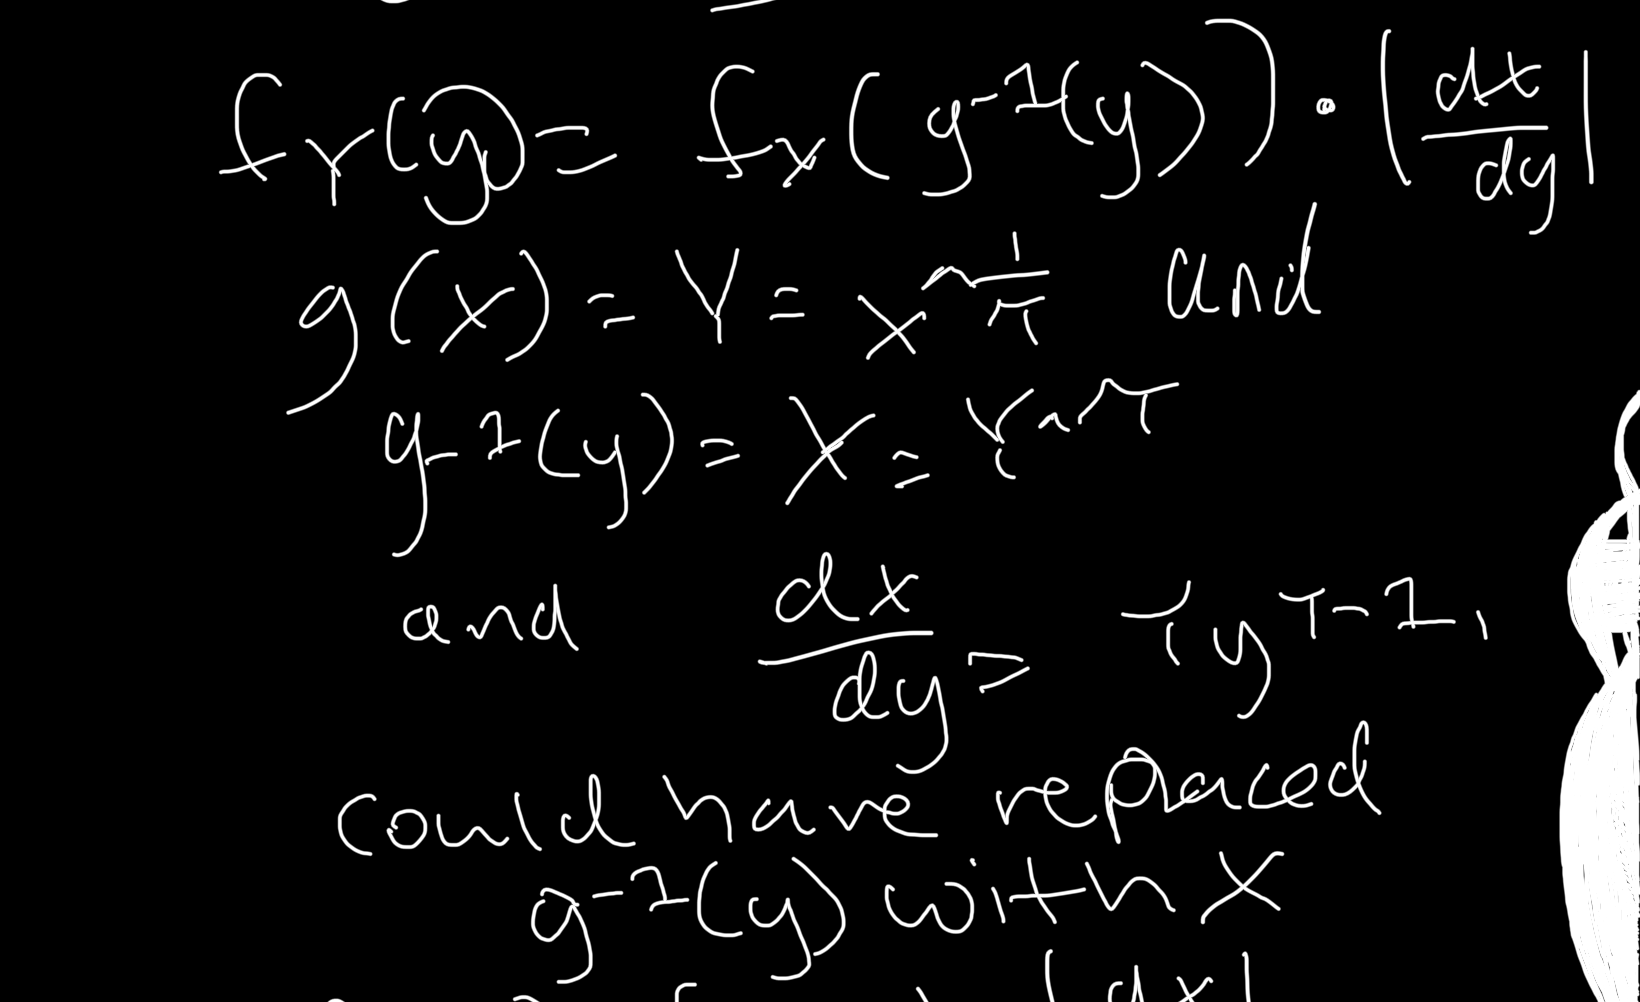 f_Y(y) = f_X(g^-1(y)) · |dx/dy|
g(x) = Y = x^1/τ and
g^-1(y) = X = Y^τ
and dx/dy = τy^τ-1,
could have replaced
g^-1(y) with X
|dx|